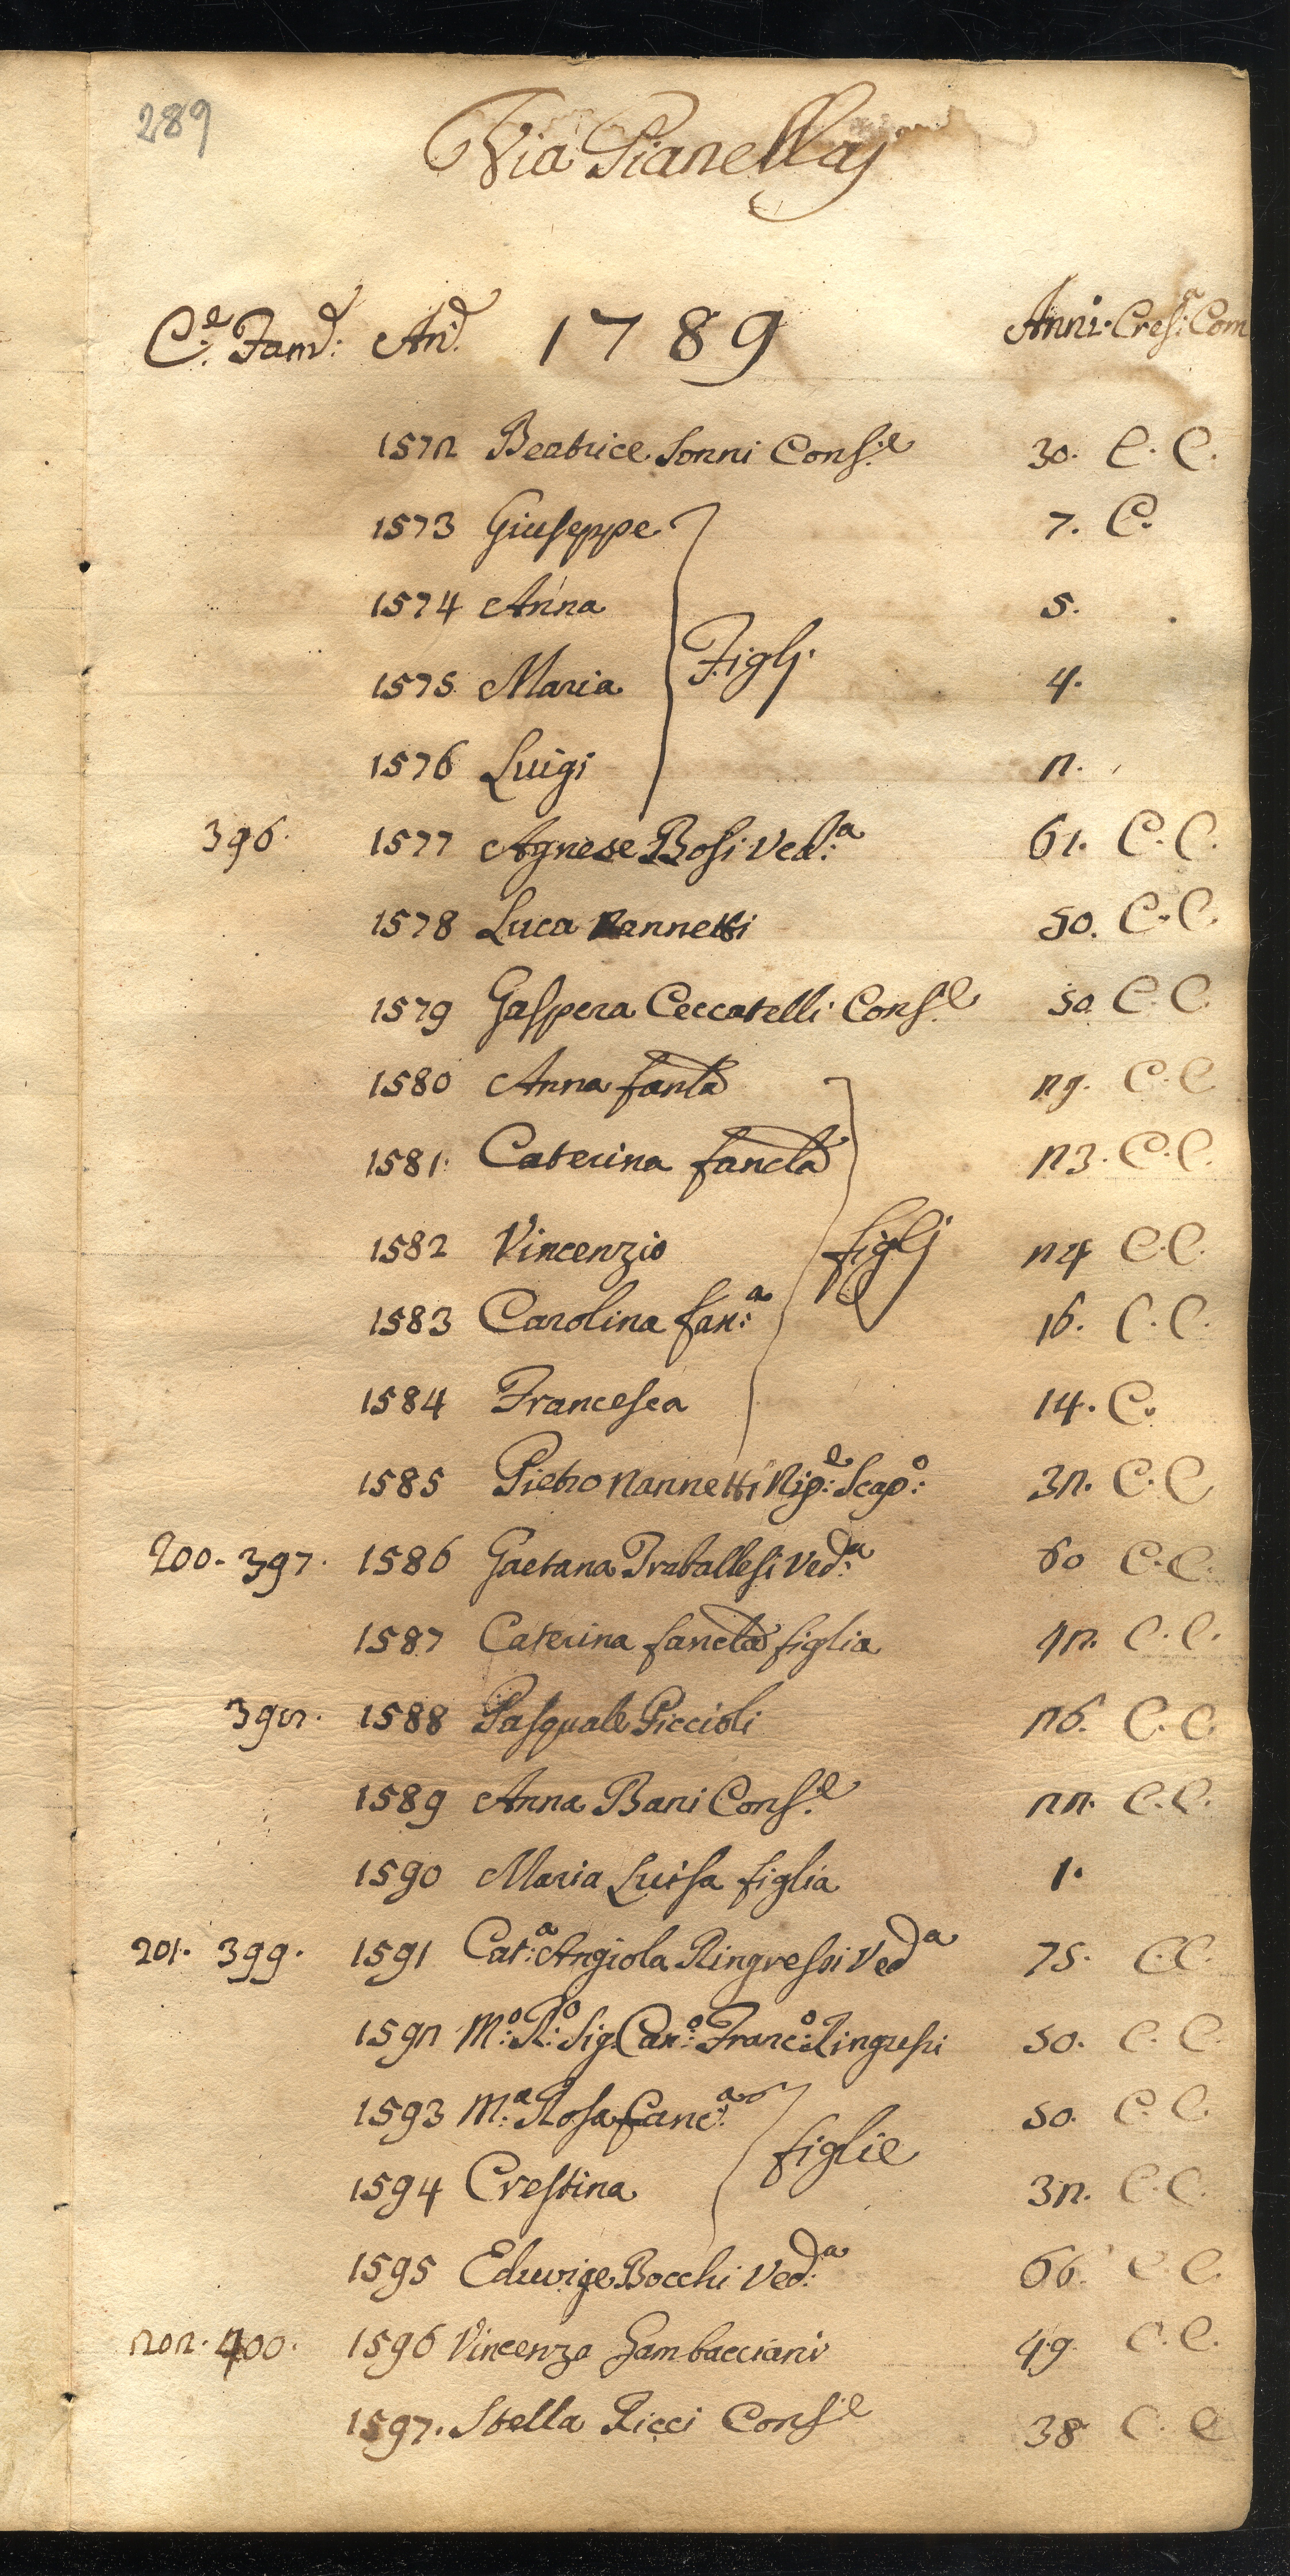 289
Via Pianellaj
C.e Fam.e: An.e 1789 Anni. Cres.a Com
1572 Beatrice Sonni Cons.e 30. C. C.
1573 Giuseppe 7. C.
1574 Anna 5.
Figlj.
1575 Maria 4.
1576 Luigi 2.
396. 1577 Agnese Bosi Ved.a 61. C. C.
1578 Luca Nannetti 50. C. C.
1579 Gaspera Ceccatelli Cons.e 50 C. C.
1580 Anna fanla 29. C. C
1581. Caterina fancla 23. C. C.
1582 Vincenzio figlj 24 C. C.
1583 Carolina fan:a 16. C. C.
1584 Francesca 14. C.
1585 Pietro Nannetti Nip:e Scap:o 32. C. C
200. 397. 1586 Gaetana Traballesi Ved:a 60 C. C.
1587 Caterina fancla figlia 42. C. C.
398. 1588 Pasquale Piccioli 26. C. C.
1589 Anna Bani Cons.e 22. C. C.
1590 Maria Luisa figlia 1.
201. 399. 1591 Cat:a Angiola Ringressi Ved.a 75. C. C.
1592 M:o R:o Sig. Can:o Franc:o Ringressi 50. C. C.
1593 M:a Rosa fanc:a 50. C. C.
figlie
1594 Crestina 32. C. C.
1595 Eduvige Bocchi Ved:a 66. C. C.
202. 400. 1596 Vincenzo Gambacciani 49. C. C.
1597. Stella Ricci Cons.e 38 C. C